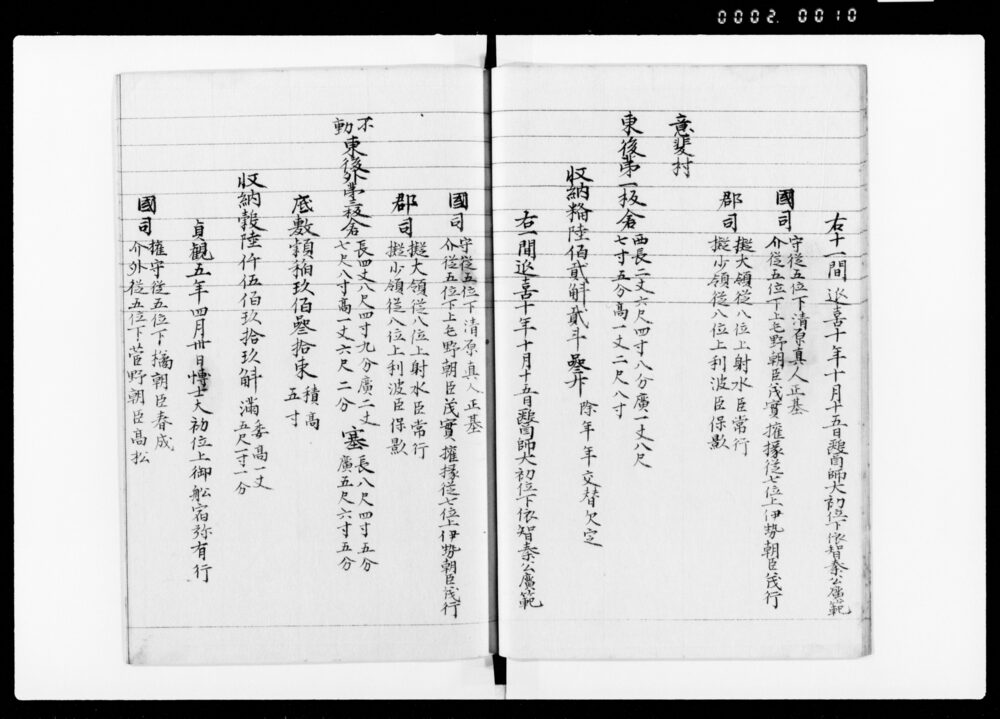 0002. 0010
右十一間延喜十年十月十五日醫師大初位下依智秦公廣範
國司 守従五位下清原真人正基
介従五位下上毛野朝臣茂實 權掾従七位上伊勢朝臣茂行
郡司 擬大領従八位上射水臣常行
擬少領従八位上利波臣保影
意斐村
東後第一板倉 西長二丈六尺四寸八分廣一丈八尺
七寸五分高一丈二尺八寸
収納糒陸佰貳斛貳斗叄升 除年年交替欠定
右一間延喜十年十月十五日醫師大初位下依智秦公廣範
國司 守従五位下清原真人正基
介従五位下上毛野朝臣茂實 權掾従七位上伊勢朝臣茂行
郡司 擬大領従八位上射水臣常行
擬少領従八位上利波臣保影
不動 東後外第二板倉 長四丈八尺四寸九分廣二丈
七尺八寸高一丈六尺二分 塞 長八尺四寸五分
廣五尺六寸五分
底敷穎稲玖佰叄拾束 積高
五寸
収納穀陸仟伍佰玖拾玖斛 滿 委高一丈
五尺一寸一分
貞觀五年四月卅日博士大初位上御舩宿祢有行
國司 權守従五位下橘朝臣春成
介外従五位下菅野朝臣高松